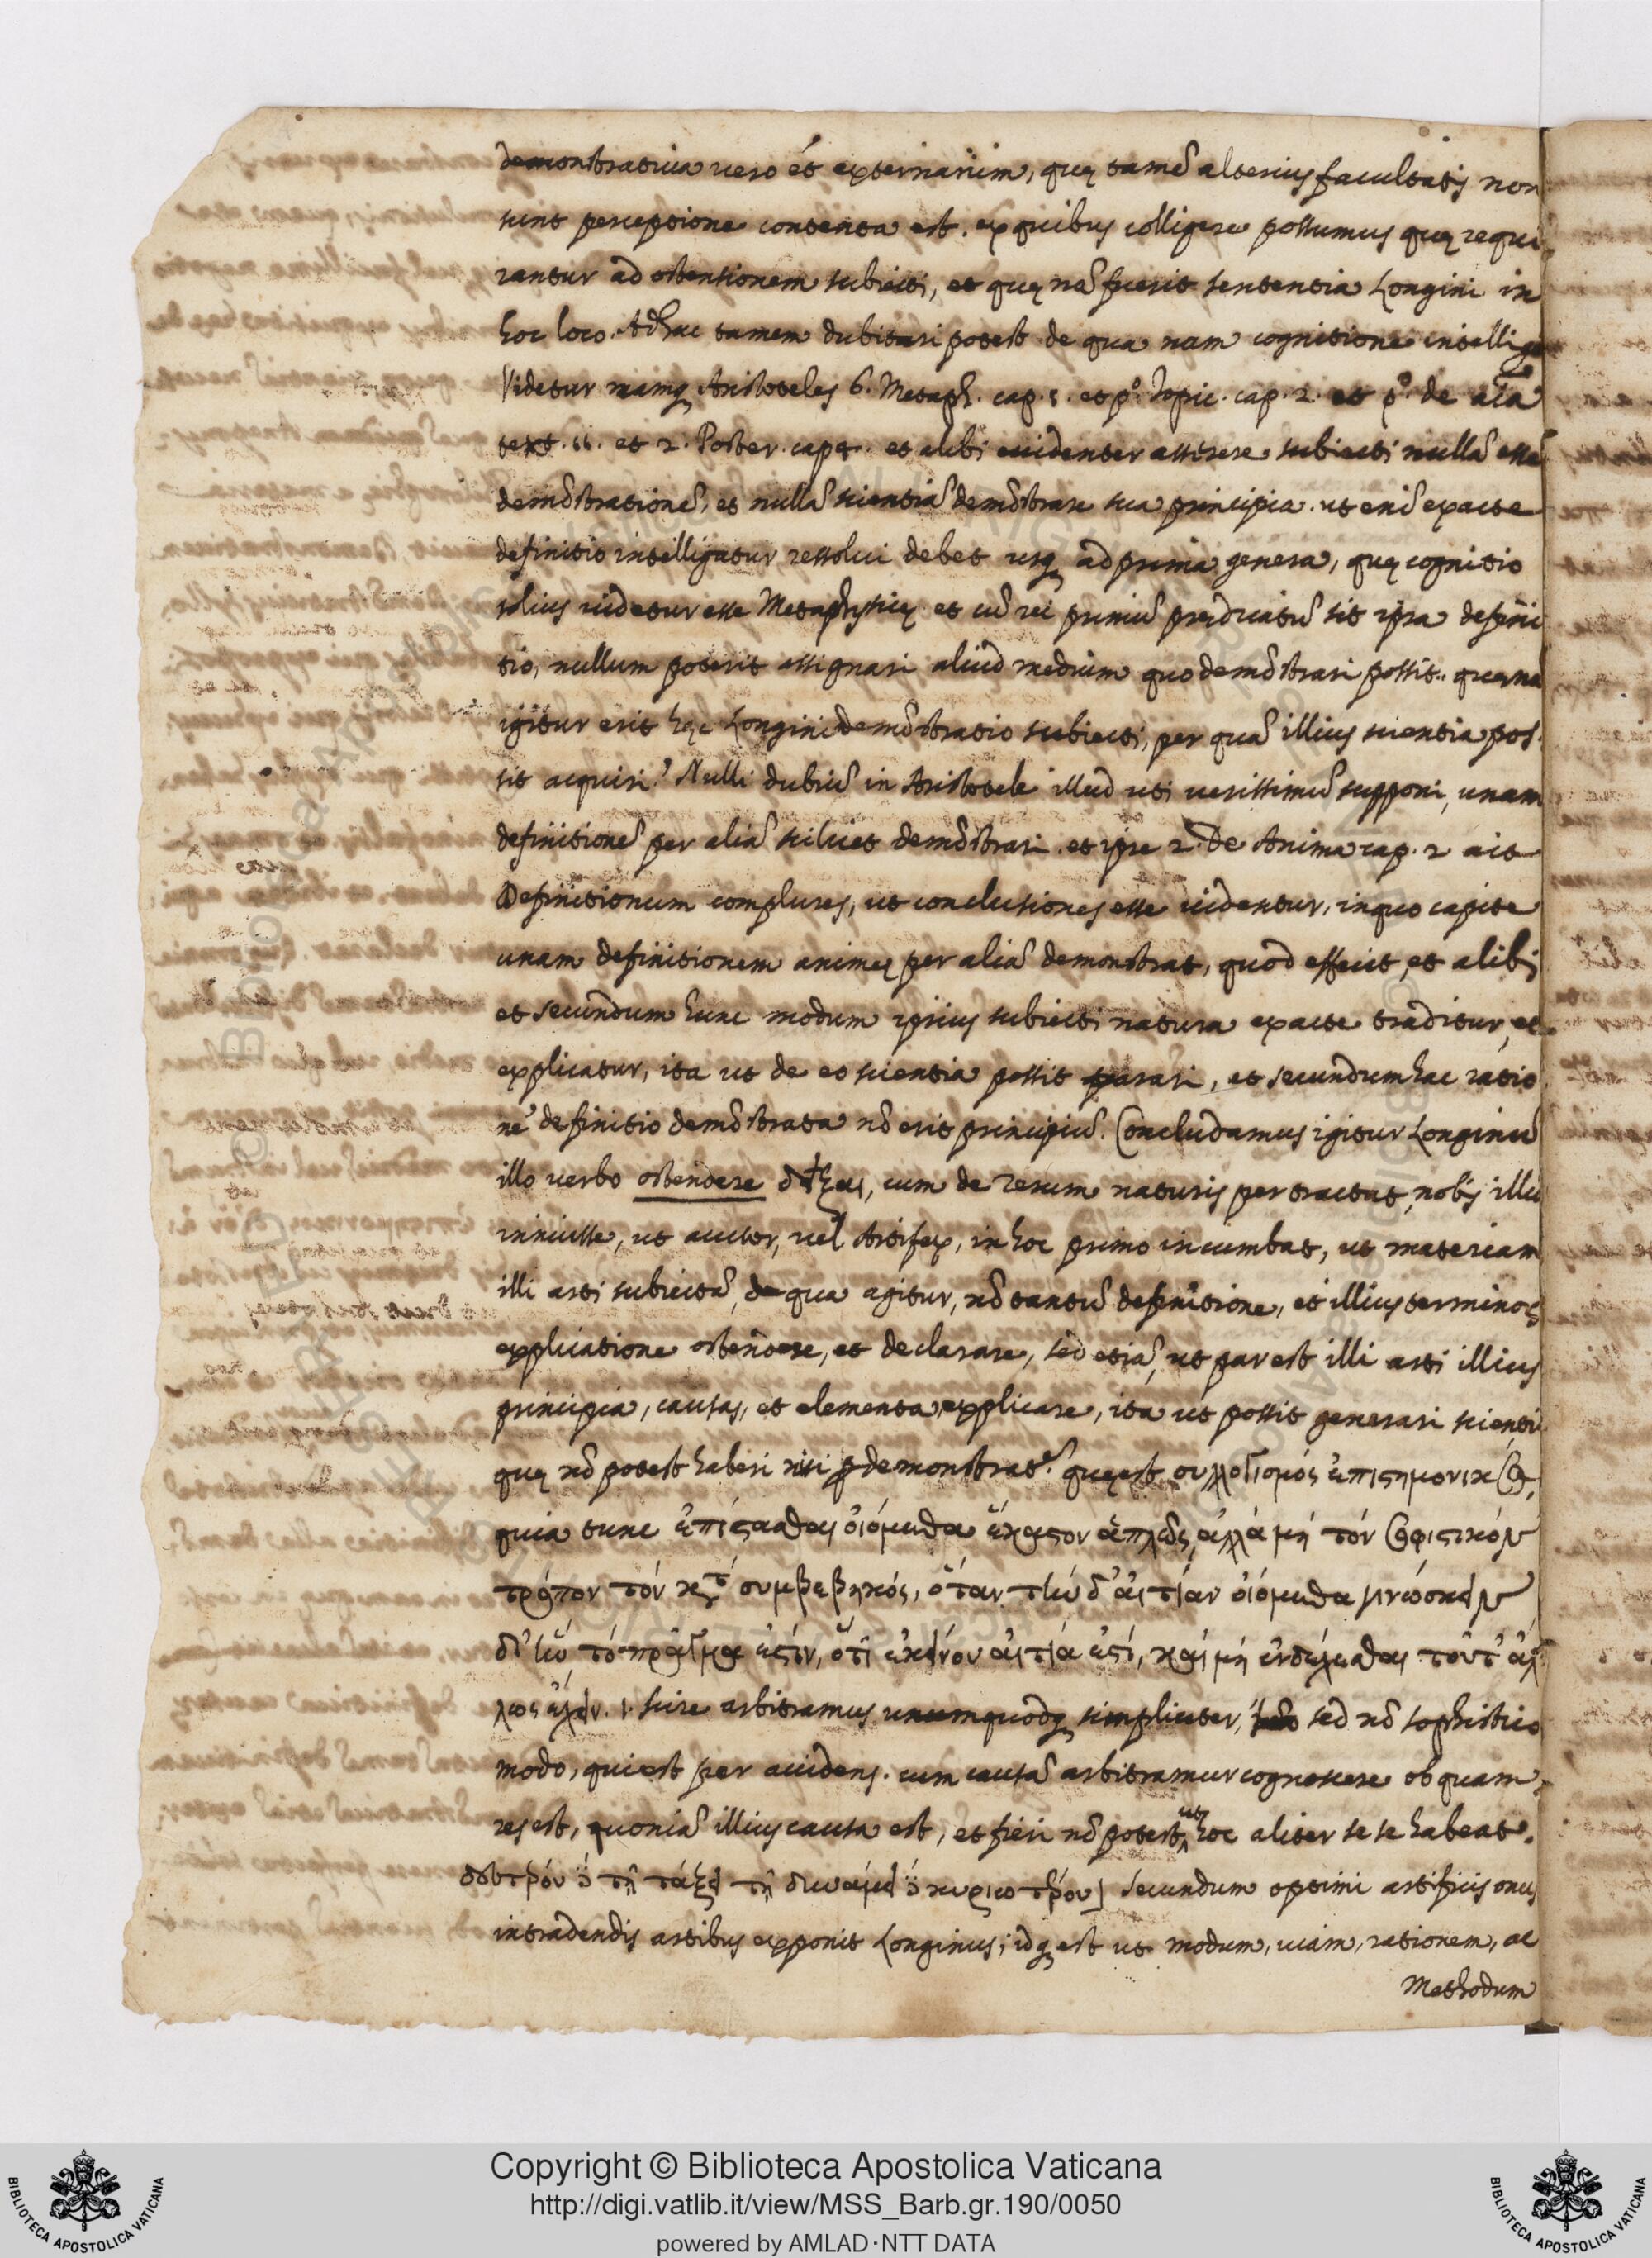 demonstratiua uero et externarum, quę tamẽ alterius facultatis non
sunt perceptione contenta est. ex quibus colligere possumus quę requi
rantur ad ostensionem subiecti, et quę nã fuerit sententia Longini in
hoc loco. Adhuc tamen dubitari potest de qua nam cognitione intellig
Videtur namq Aristoteles 6. Metaph. cap. 1. et pº. Topic. cap. 2. et pº. de aĩa
text. 11. et 2. Poster. cap 4. et alibi euidenter asserere subiecti nullã esse
demõstrationẽ, et nullã scientiã demõstrare sua principia. ut enĩ exacte
definitio intelligatur ressolui debet usq ad prima genera, quę cognitio
solius uidetur esse Metaphysicę. et cũ rei primũ prędicatũ sit ipsa defini
tio, nullum poterit assignari aliud medium quo demõstrari possit. quęna
igitur erit hęc Longini demõstratio subiecti, per quã illius scientia pos
sit acquiri? Nulli dubiũ in Aristotele illud uti uerissimũ supponi, unam
definitionẽ per aliã scilicet demõstrari. et ipse 2. De Anima cap. 2 ait
Definitionum complures, ut conclusiones esse uidentur, in quo capite
unam definitionem animę per aliã demonstrat, quod effecit, et alibi
et secundum hunc modum ipsius subiecti natura exacte traditur, et
explicatur, ita ut de eo scientia possit parari, et secundum hac ratio
nẽ definitio demõstrata nõ erit principiũ. Concludamus igitur Longinũ
illo uerbo ostendere δεῖξαι, cum de rerum naturis pertractat, nobis illu
innuisse, ut auctor, uel Artifex, in hoc primo incumbat, ut materiam
illi arti subiectã, de qua agitur, nõ tantũ definitione, et illius terminos
explicatione ostendere, et declarare, sed etiã, ut par est illi arti illius
principia, causas, et elementa explicare, ita ut possit generari scienti
quę nõ potest haberi nisi p demonstrat. quę est συλλογισμός ἐπιστημονικὸς,
quia tunc ἐπίστασθαι οἰόμεθα ἕκαστον ἁπλῶς, ἀλλὰ μή τόν σοφιστικόν
τρόπον τόν κατὰ συμβεβηκός, ὅταν τὴν δ᾽ αἰτίαν οἰόμεθα γινώσκειν
δι᾽ ἣν τό πρᾶγμα ἐστίν, ὅτι ἐκείνου αἰτία ἐστί, καὶ μή ἐνδέχεσθαι τοῦτ᾽ ἄλ
λως ἔχειν. i. scire arbitramur unumquodq simpliciter, sed nõ sophistico
modo, qui est per accidens. cum causã arbitramur cognoscere ob quam
res est, quoniã illius causa est, et fieri nõ potest, ut hoc aliter se se habeat.
δευτερόν δὲ τῇ τάξει τῇ δυνάμει δὲ κυριωτέρου] secundum optimi artificis onus
in tradendis artibus exponit Longinus; idq est ut modum, uiam, rationem, ac
Methodum
Copyright © Biblioteca Apostolica Vaticana
http://digi.vatlib.it/view/MSS_Barb.gr.190/0050
powered by AMLAD·NTT DATA